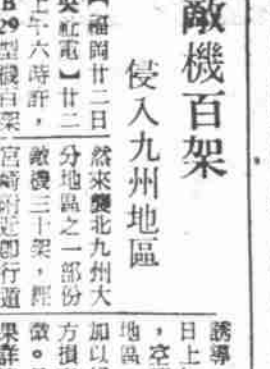 敵機百架
侵入九州地區
【福岡廿二日
央社電】廿二
上午六時許，
B29型機百架
然來襲北九州大
分地區之一部份
敵機三十架，經
宮崎附近卽行遁
誘導
日上
，空
地區
加以
方損
微。
果詳